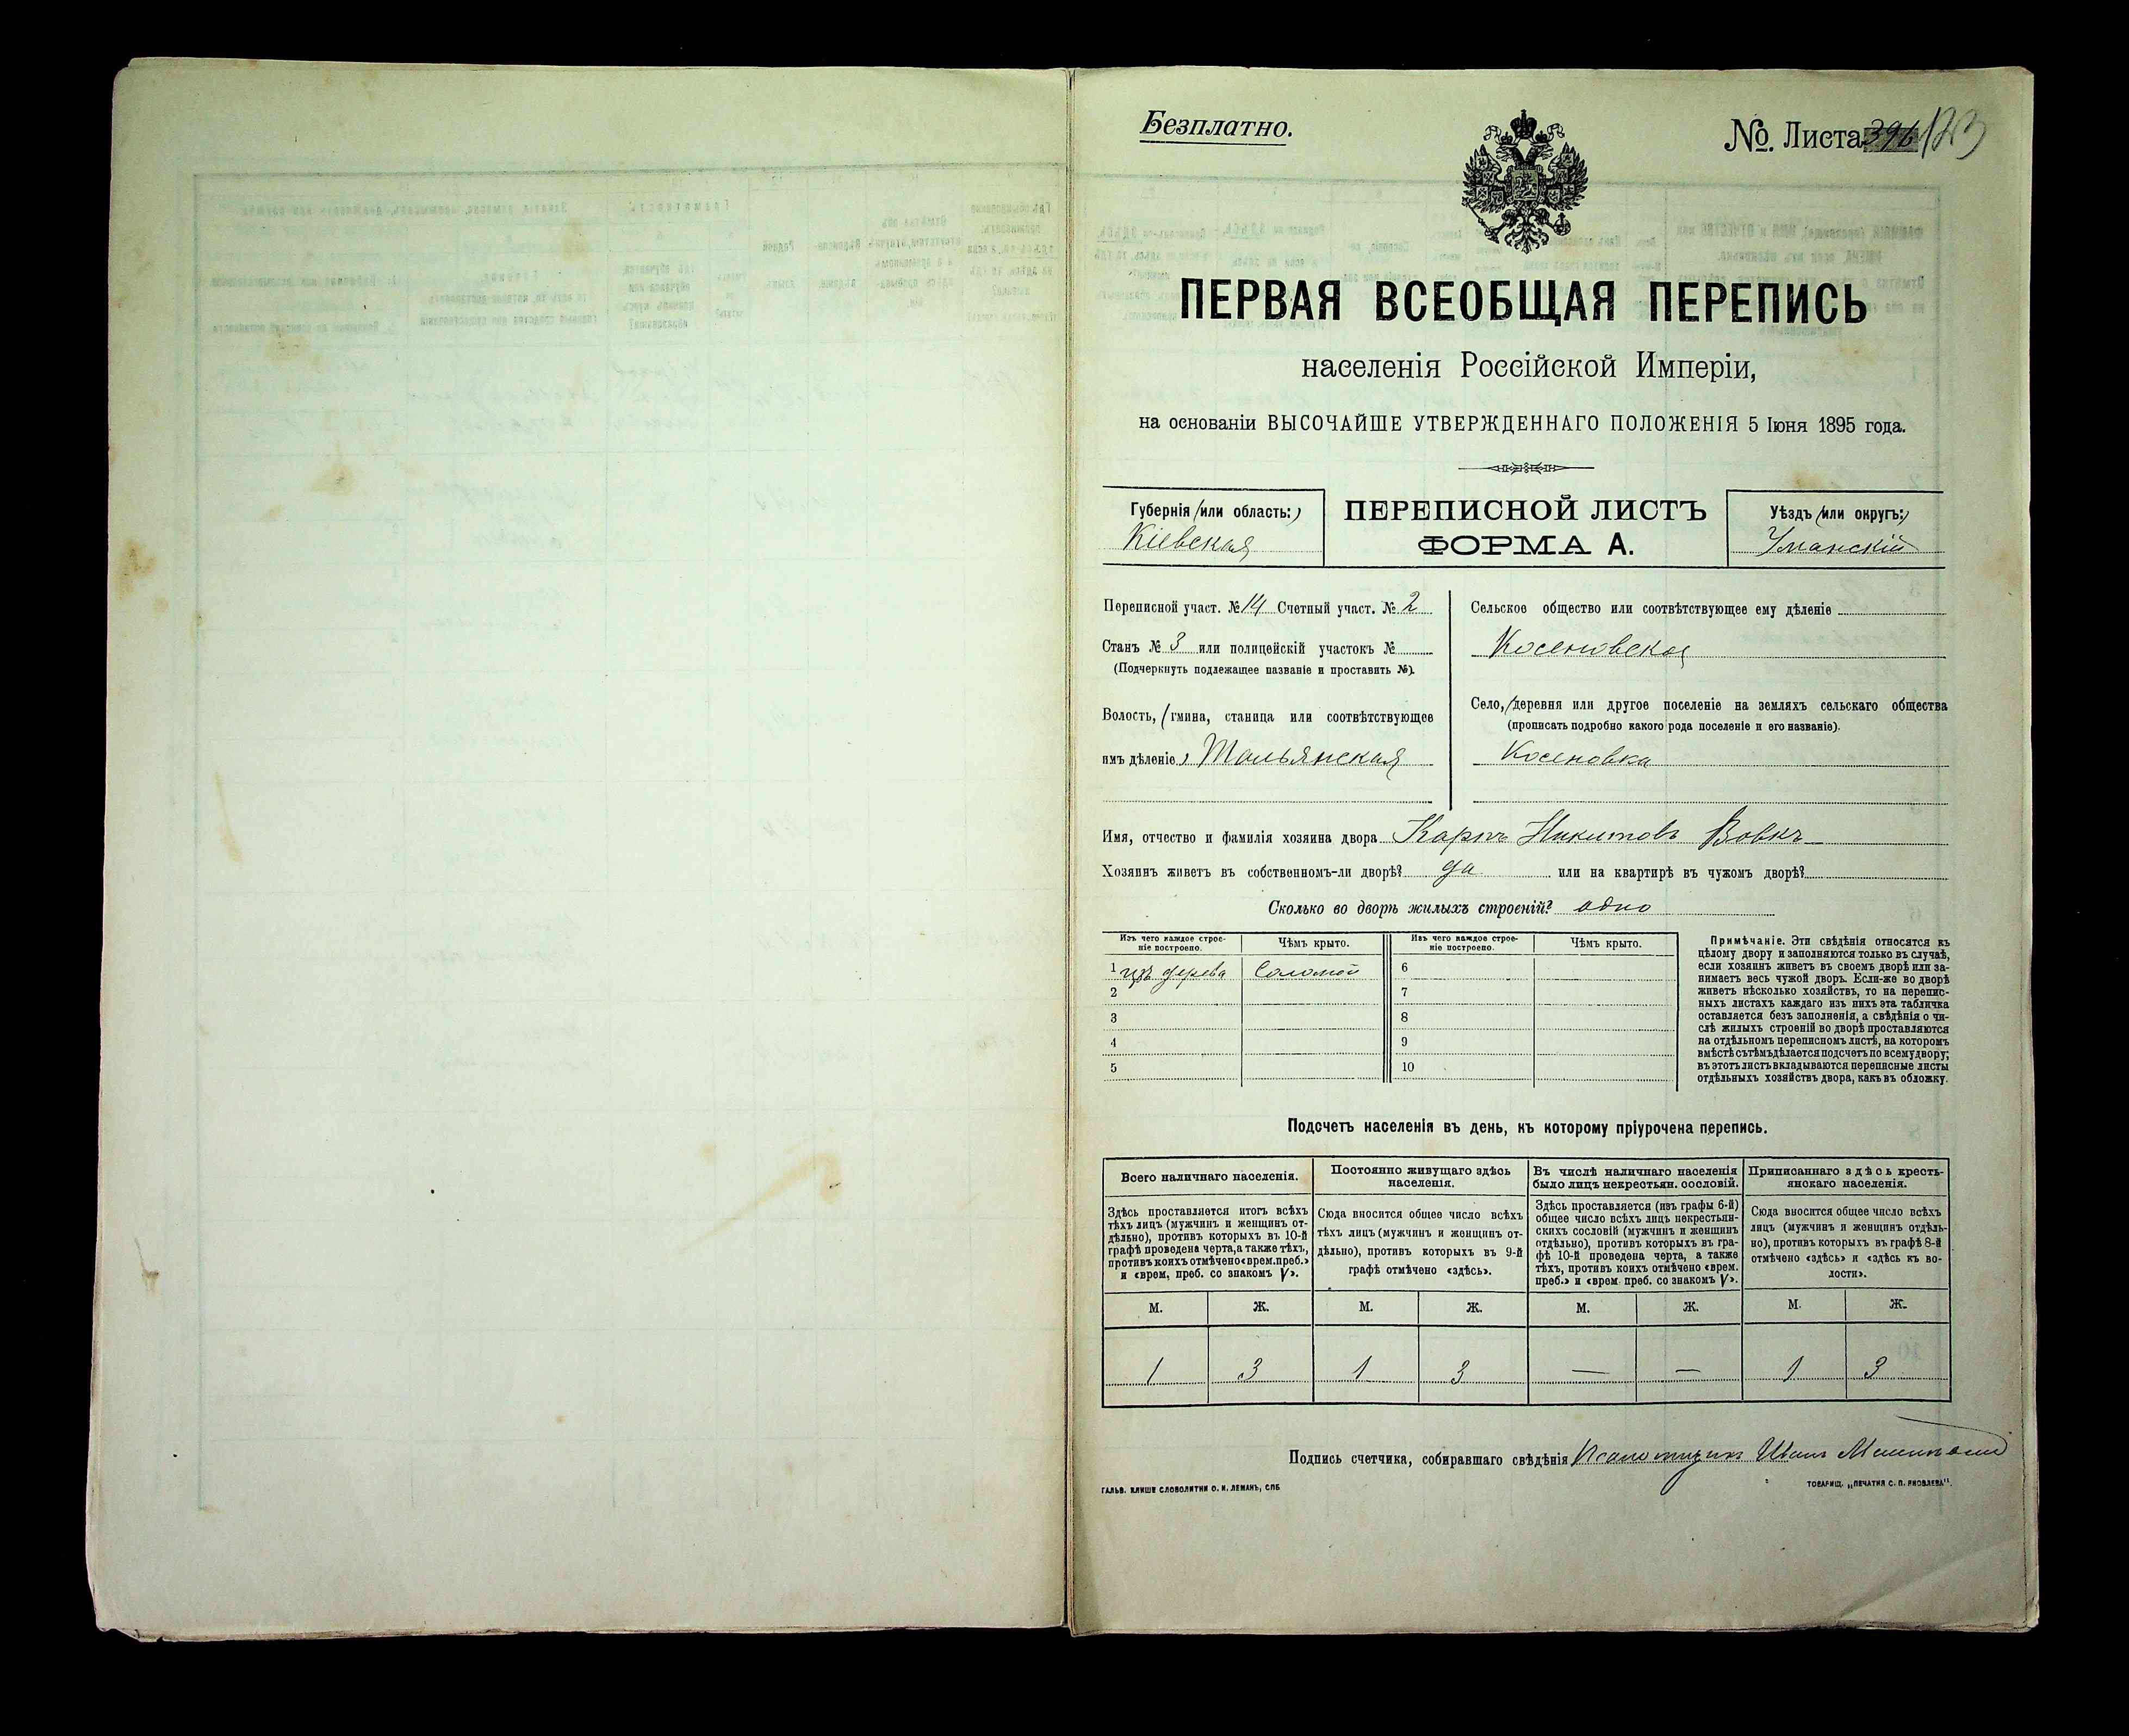 Безплатно.
№. Листа 396 123
ПЕРВАЯ ВСЕОБЩАЯ ПЕРЕПИСЬ
населенія Россійской Имперіи,
на основаніи ВЫСОЧАЙШЕ УТВЕРЖДЕННАГО ПОЛОЖЕНІЯ 5 Іюня 1895 года.
Губернія (или область:)
Кіевская
ПЕРЕПИСНОЙ ЛИСТЪ
ФОРМА А.
Уѣздъ (или округъ:)
Уманскій
Переписной участ. № 14 Счетный участ. № 2
Станъ № 3 или полицейскій участокъ №
(Подчеркнуть подлежащее названіе и проставить №).
Волость, (гмина, станица или соотвѣтствующее
имъ дѣленіе) Тальянская
Сельское общество или соотвѣтствующее ему дѣленіе
Косеновское
Село, (деревня или другое поселеніе на земляхъ сельскаго общества
(прописать подробно какого рода поселеніе и его названіе).
Косеновка
Имя, отчество и фамилія хозяина двора Карпъ Никитовъ Вовкъ
Хозяинъ живетъ въ собственномъ-ли дворѣ? да или на квартирѣ въ чужомъ дворѣ?
Сколько во дворѣ жилыхъ строеній? одно
Изъ чего каждое строе-
ніе построено.
Чѣмъ крыто.
Изъ чего каждое строе-
ніе построено.
Чѣмъ крыто.
1 изъ дерева Соломой 6
2 7
3 8
4 9
5 10
Примѣчаніе. Эти свѣдѣнія относятся къ
цѣлому двору и заполняются только въ случаѣ,
если хозяинъ живетъ въ своемъ дворѣ или за-
нимаетъ весь чужой дворъ. Если-же во дворѣ
живетъ нѣсколько хозяйствъ, то на перепис-
ныхъ листахъ каждаго изъ нихъ эта табличка
оставляется безъ заполненія, а свѣдѣнія о чи-
слѣ жилыхъ строеній во дворѣ проставляются
на отдѣльномъ переписномъ листѣ, на которомъ
вмѣстѣ съ тѣмъ дѣлается подсчетъ по всему двору;
въ этотъ листъ вкладываются переписные листы
отдѣльныхъ хозяйствъ двора, какъ въ обложку.
Подсчетъ населенія въ день, къ которому пріурочена перепись.
Всего наличнаго населенія.
Здѣсь проставляется итогъ всѣхъ
тѣхъ лицъ (мужчинъ и женщинъ от-
дѣльно), противъ которыхъ въ 10-й
графѣ проведена черта, а также тѣхъ,
противъ коихъ отмѣчено «врем. преб.»
и «врем. преб. со знакомъ V».
Постоянно живущаго здѣсь
населенія.
Сюда вносится общее число всѣхъ
тѣхъ лицъ (мужчинъ и женщинъ от-
дѣльно), противъ которыхъ въ 9-й
графѣ отмѣчено «здѣсь».
Въ числѣ наличнаго населенія
было лицъ некрестьян. сословій.
Здѣсь проставляется (изъ графы 6-й)
общее число всѣхъ лицъ некрестьян-
скихъ сословій (мужчинъ и женщинъ
отдѣльно), противъ которыхъ въ гра-
фѣ 10-й проведена черта, а также
тѣхъ, противъ коихъ отмѣчено «врем.
преб.» и «врем. преб. со знакомъ V».
Приписаннаго здѣсь кресть-
янскаго населенія.
Сюда вносится общее число всѣхъ
лицъ (мужчинъ и женщинъ отдѣль-
но), противъ которыхъ въ графѣ 8-й
отмѣчено «здѣсь» и «здѣсь къ во-
лости».
М. Ж. М. Ж. М. Ж. М. Ж.
1 3 1 3 — — 1 3
Подпись счетчика, собиравшаго свѣдѣнія Псаломщикъ Иванъ
ГАЛЬВ. КЛИШЕ СЛОВОЛИТНИ О. И. ЛЕМАНЪ, СПБ
ТОВАРИЩ. „ПЕЧАТНЯ С. П. ЯКОВЛЕВА".